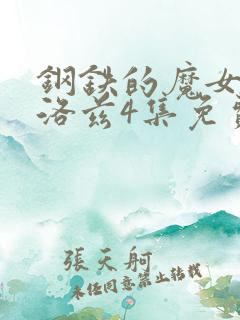 鋼鉄的魔女
洛茲4集免
張天舸
未经同意禁止转载